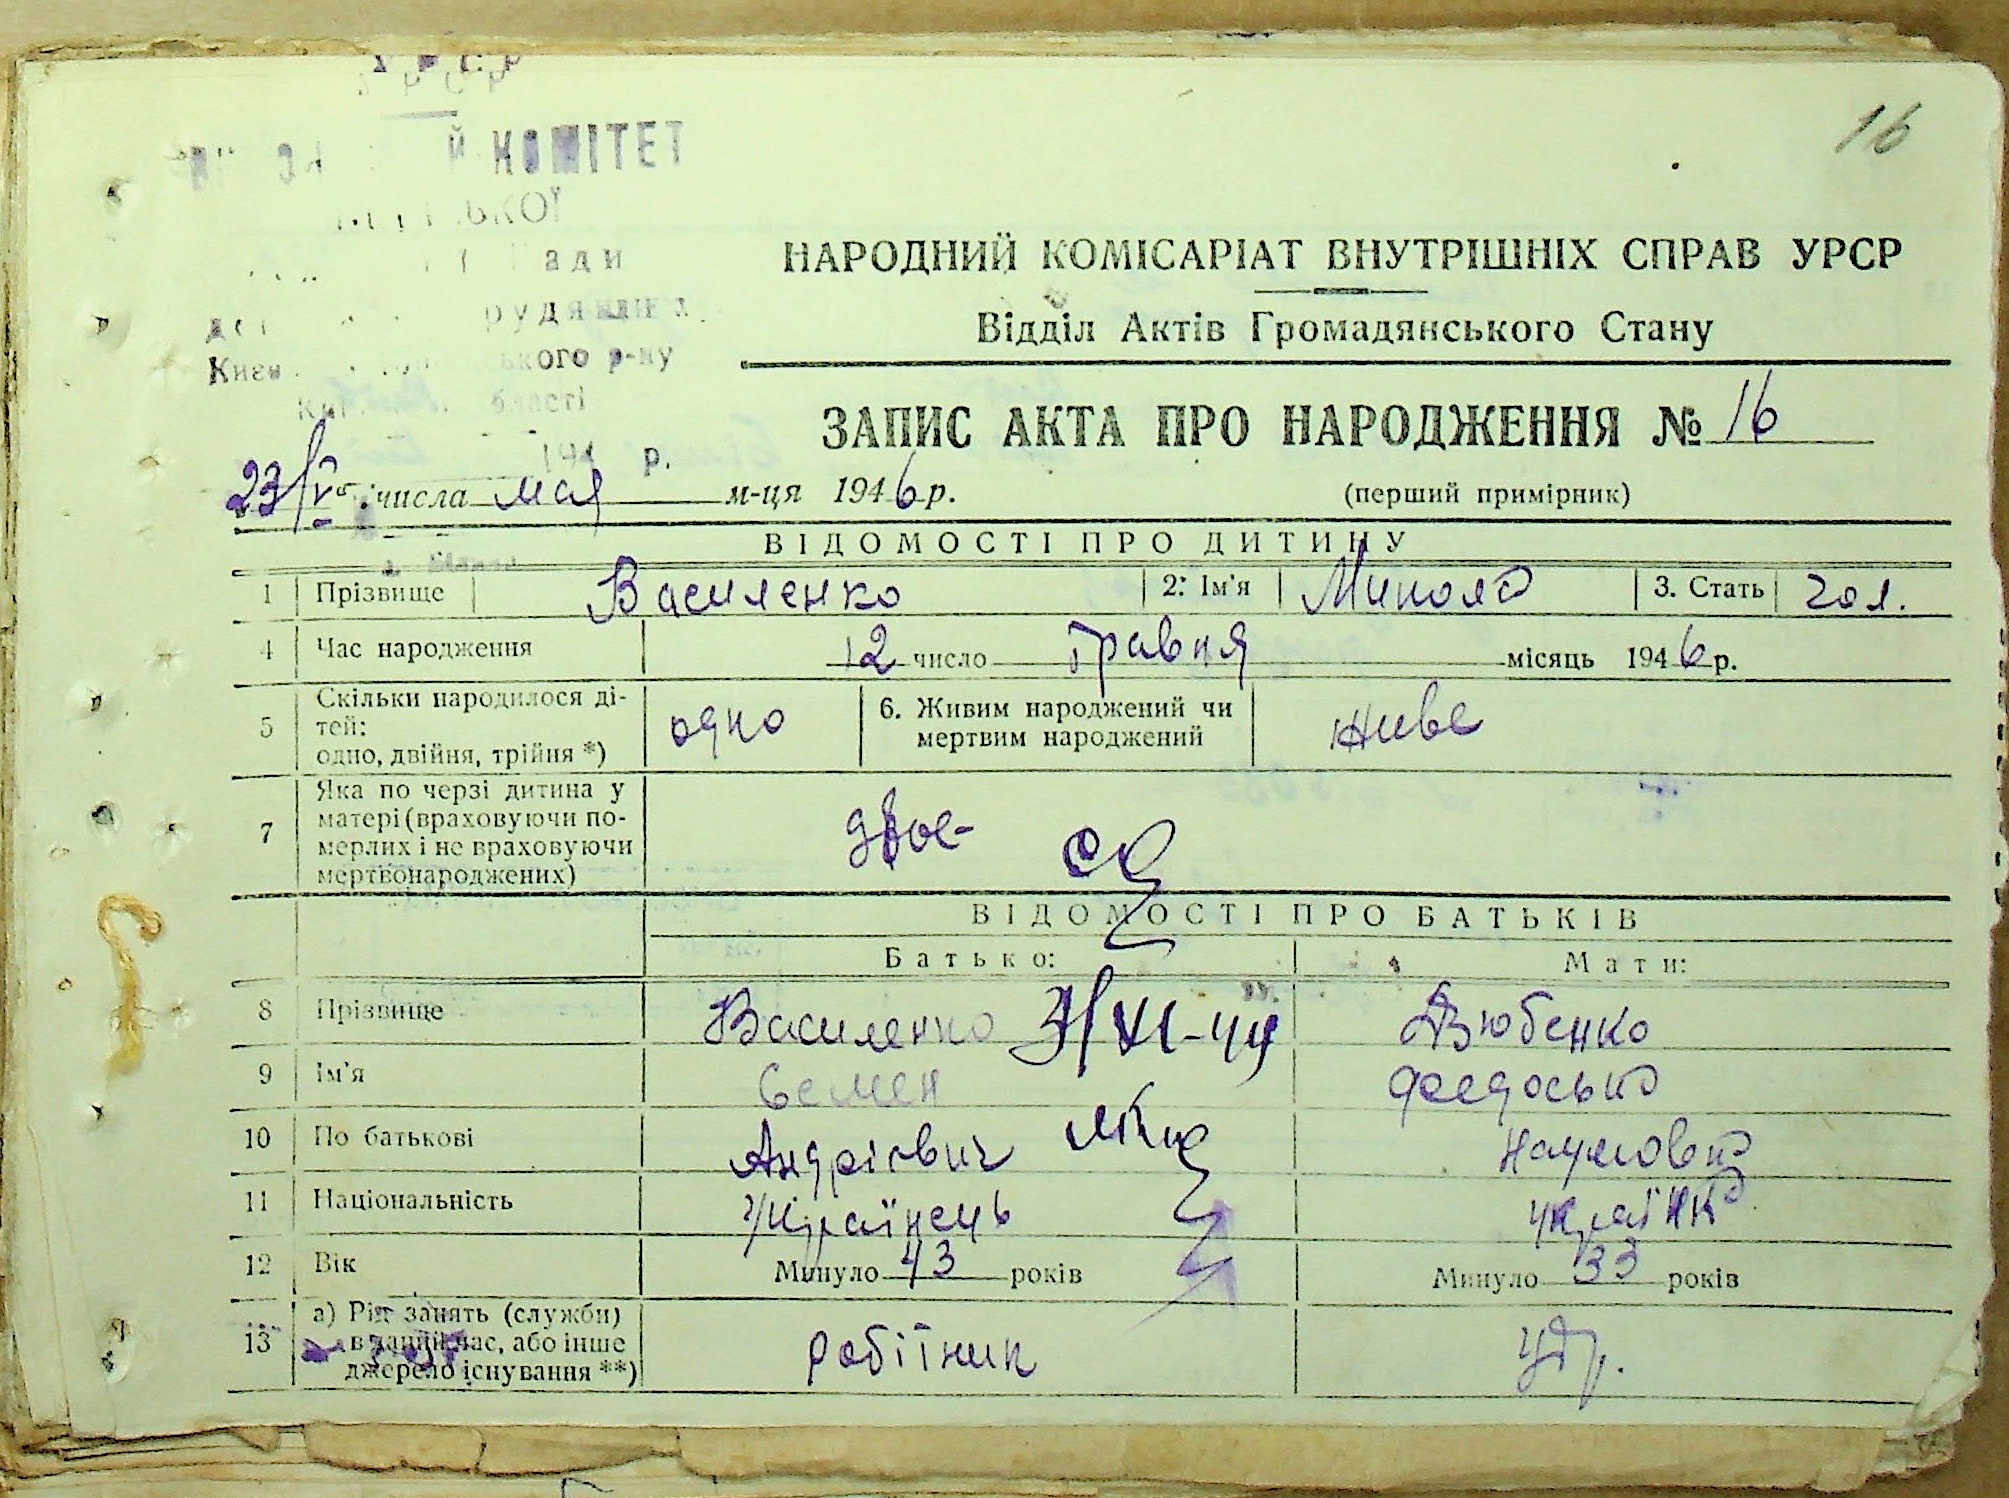 16
КОМІТЕТ
р-ну
НАРОДНИЙ КОМІСАРІАТ ВНУТРІШНІХ СПРАВ УРСР
Відділ Актів Громадянського Стану
ЗАПИС АКТА ПРО НАРОДЖЕННЯ № 16
р.
23/V числа мая м-ця 1946 р.
(перший примірник)
ВІДОМОСТІ ПРО ДИТИНУ
1 Прізвище Василенко 2. Ім'я Микола 3. Стать чол.
4 Час народження 12 число травня місяць 1946 р.
5 Скільки народилося ді-
тей:
одно, двійня, трійня *) одно 6. Живим народжений чи
мертвим народжений живе
7 Яка по черзі дитина у
матері (враховуючи по-
мерлих і не враховуючи
мертвонароджених) двое
ВІДОМОСТІ ПРО БАТЬКІВ
Батько: Мати:
8 Прізвище Василенко Дзюбенко
9 Ім'я Семен Федоська
10 По батькові Андрієвич Наумовна
11 Національність Українець українка
12 Вік Минуло 43 років Минуло 33 років
13 а) Рід занять (служби)
в даний час, або інше
джерело існування **) робітник